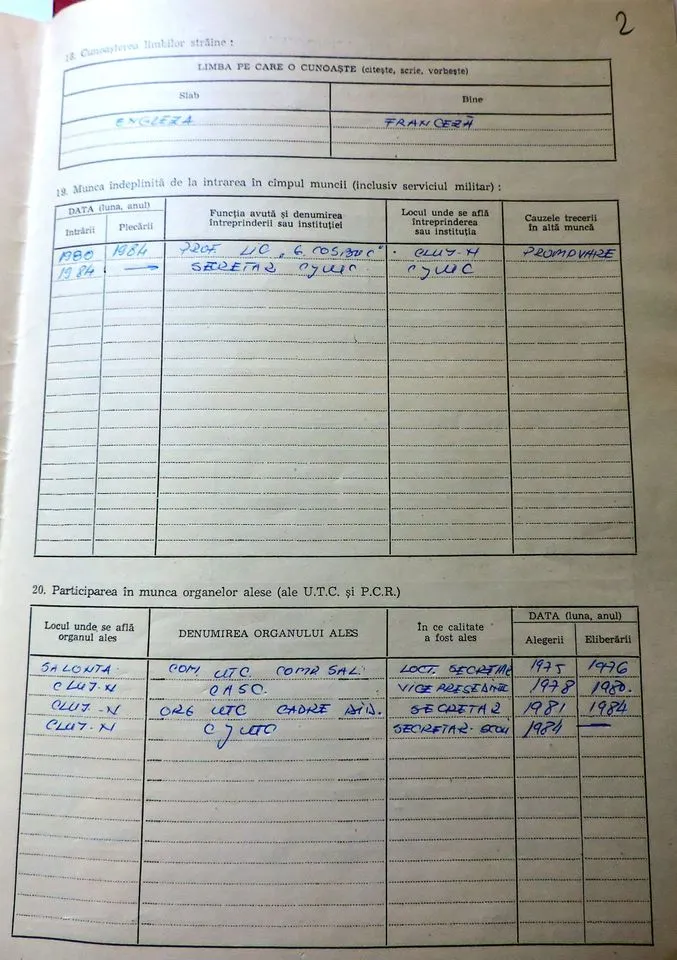 2
18. Cunoașterea limbilor străine :
LIMBA PE CARE O CUNOAȘTE (citește, scrie, vorbește)
Slab Bine
ENGLEZA FRANCEZĂ
19. Munca îndeplinită de la intrarea în cîmpul muncii (inclusiv serviciul militar) :
DATA (luna, anul) Funcția avută și denumirea întreprinderii sau instituției Locul unde se află întreprinderea sau instituția Cauzele trecerii în altă muncă
Intrării Plecării
1980 1984 PROF. LIC „G. COȘBUC" CLUJ-N PROMOVARE
1984 — SECRETAR
20. Participarea în munca organelor alese (ale U.T.C. și P.C.R.)
Locul unde se află organul ales DENUMIREA ORGANULUI ALES În ce calitate a fost ales DATA (luna, anul)
Alegerii Eliberării
SALONTA COM. UTC. LOCT. SECRETAR 1975 1976
CLUJ-N CASC. VICEPRESEDINTE 1978 1980.
CLUJ-N ORG UTC CADRE DID. SECRETAR 1981 1984
CLUJ-N CJUTC SECRETAR 1984 —